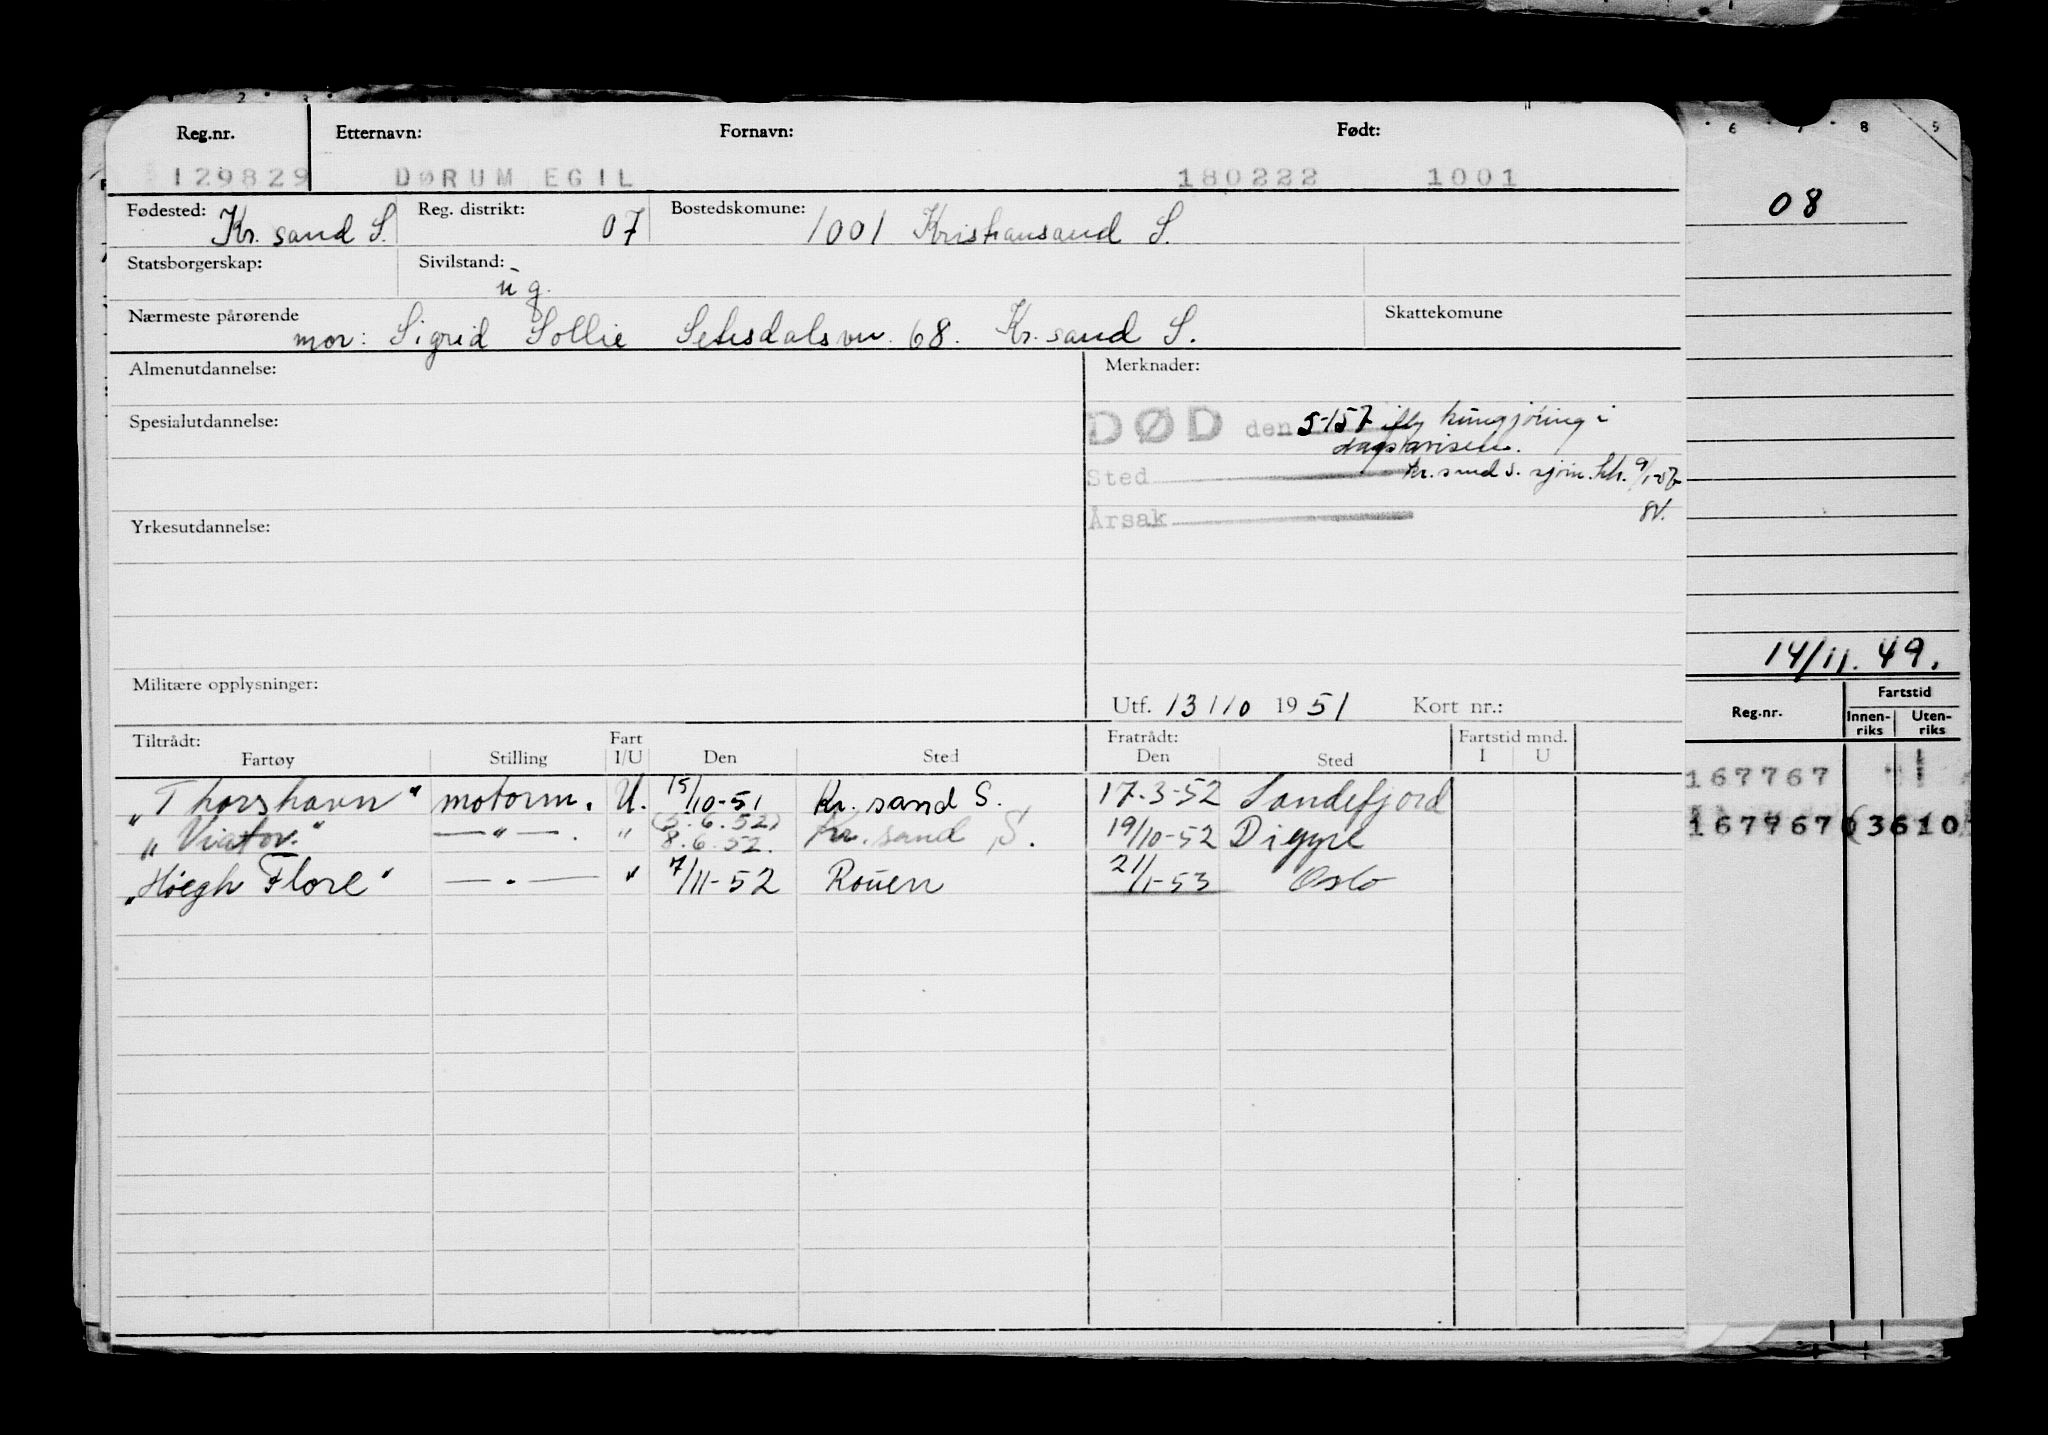 Reg.nr. Etternavn: Fornavn: Født:
129829 DØRUM EGIL 180222 1001
Fødested: Kr. sand S. Reg. distrikt: 07 Bostedskomune: 1001 Kristiansand S.
Statsborgerskap: Sivilstand: ug.
Nærmeste pårørende Skattekomune
mor: Sigrid Sollie Setesdalsvn. 68. Kr. sand S.
Almenutdannelse: Merknader:
Spesialutdannelse: DØD den 5-1 57 iflg kungjöring i
dagsavisen.
Sted Kr. sand S. sjøm. 9/1-57
Årsak
Yrkesutdannelse:
Militære opplysninger:
Utf. 13/10 1951 Kort nr.:
Tiltrådt: Fart Fratrådt: Fartstid mnd.
Fartøy Stilling I/U Den Sted Den Sted I U
"Thorshavn" motorm. U. 15/10-51 Kr. sand S. 17.3-52 Sandefjord
"Viator" —"—. " (3.6.52) 8.6.52. Kr. sand S. 19/10-52
"Høegh Flore" —"— " 7/11-52 Rouen 21/1-53 Oslo
6 7 8 9
08
14/11. 49.
Reg.nr. Fartstid
Innen-riks Uten-riks
167767 1
167767 (3610